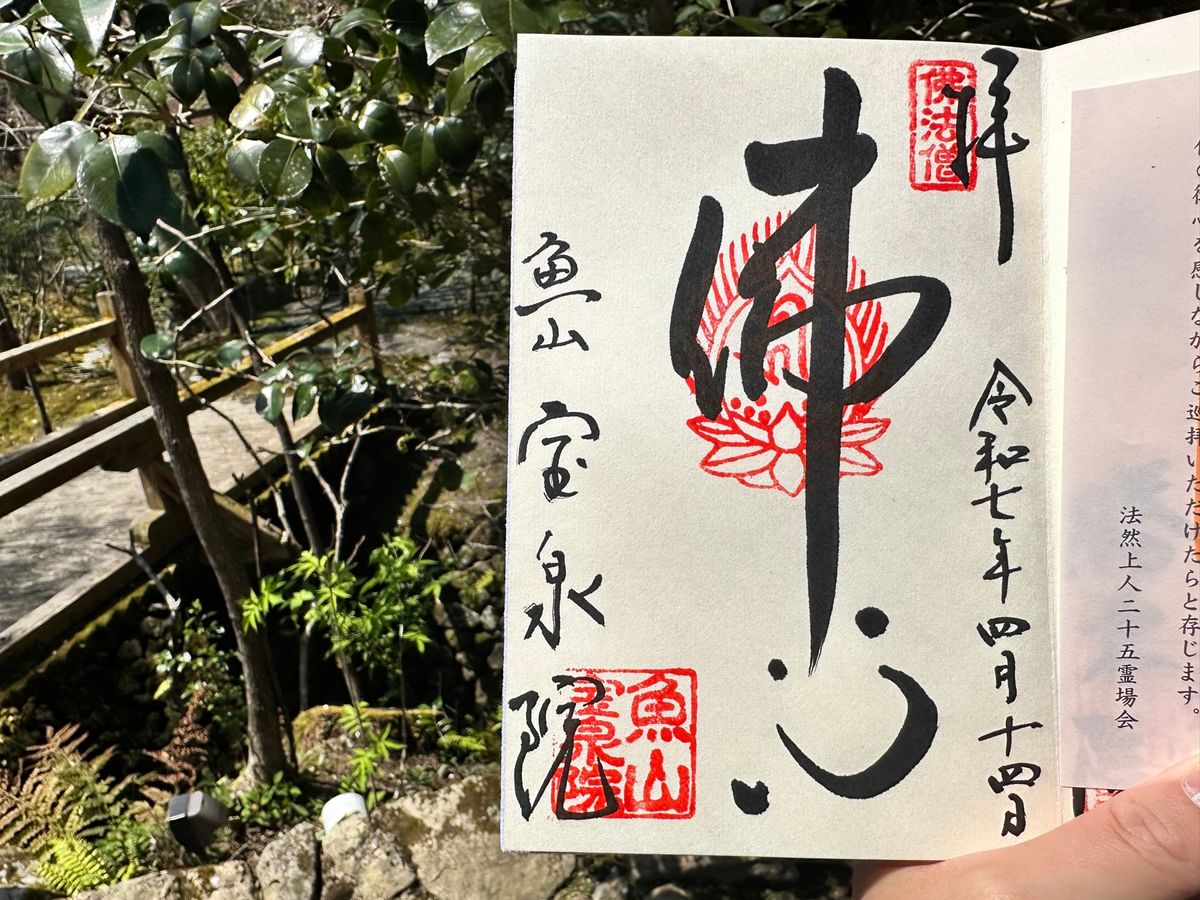 の御心を感じながらご巡拝いただけたらと存じます。
法然上人二十五霊場会
拝
佛法僧
令和七年四月十四日
佛心
魚山宝泉院
魚山
宝泉院